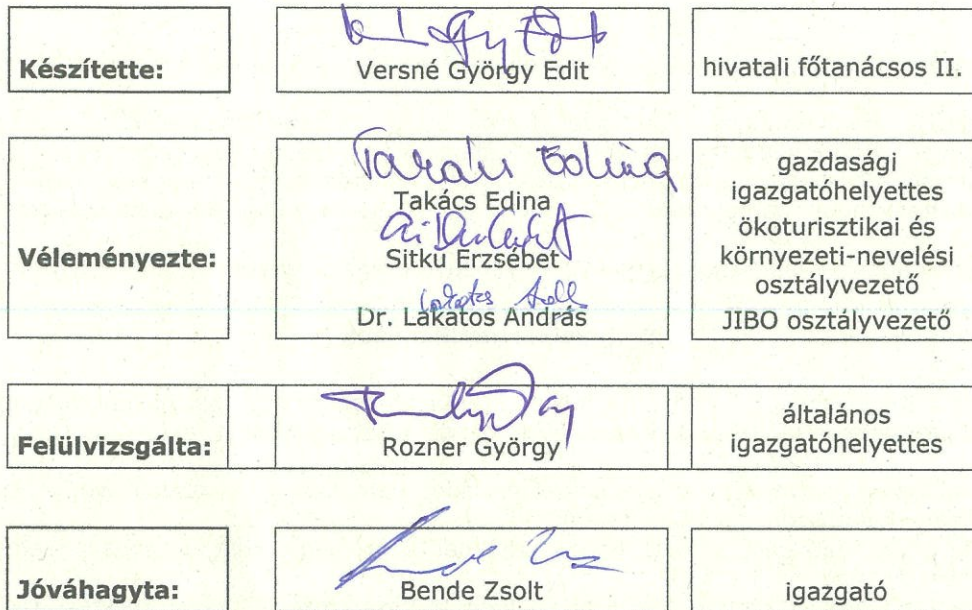 Készítette:
Versné György Edit
hivatali főtanácsos II.
Véleményezte:
Takács Edina
Takács Edina
Sitku Erzsébet
Lakatos András
Dr. Lakatos András
gazdasági
igazgatóhelyettes
ökoturisztikai és
környezeti-nevelési
osztályvezető
JIBO osztályvezető
Felülvizsgálta:
Rozner György
általános
igazgatóhelyettes
Jóváhagyta:
Bende Zsolt
igazgató